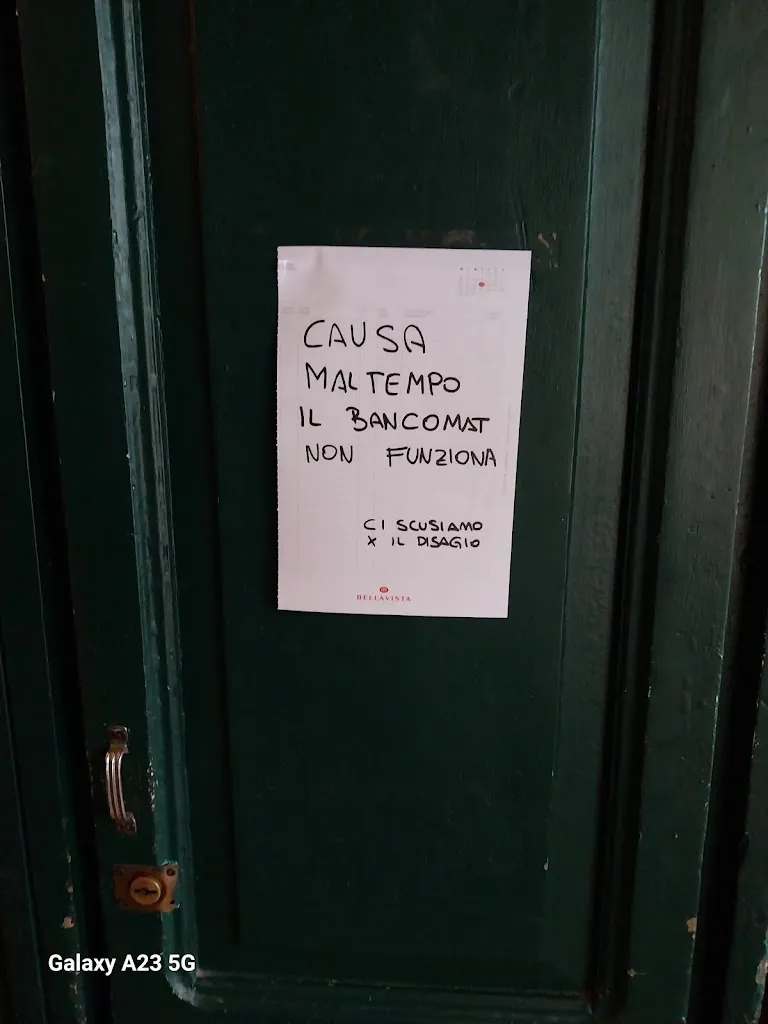 CAUSA
MALTEMPO
IL BANCOMAT
NON FUNZIONA
CI SCUSIAMO
X IL DISAGIO
BELLAVISTA
Galaxy A23 5G